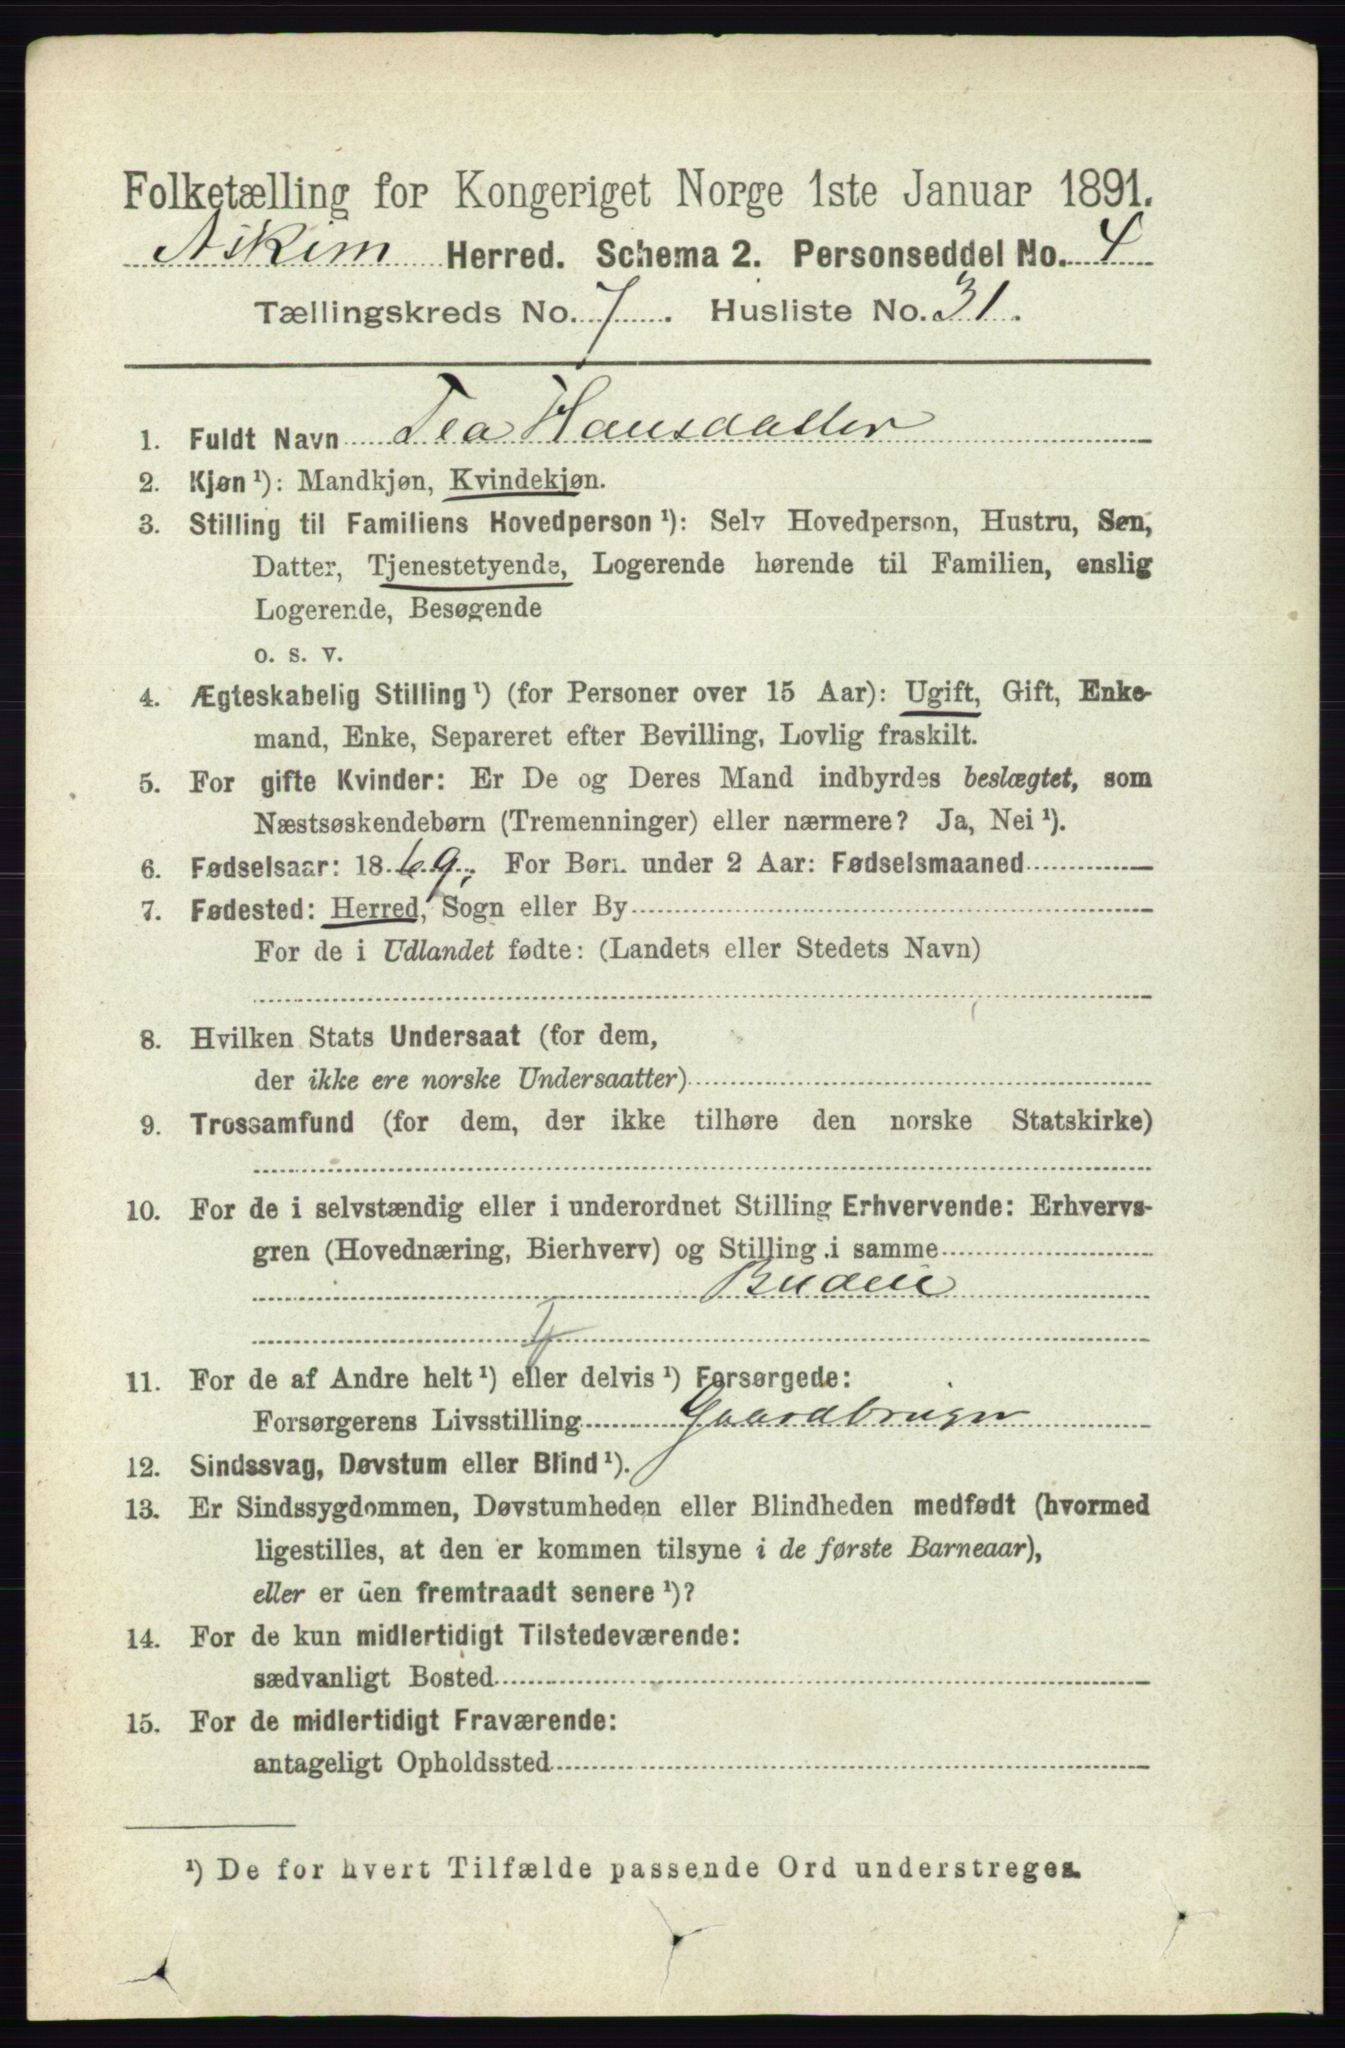 Folketælling for Kongeriget Norge 1ste Januar 1891.
Askim Herred. Schema 2. Personseddel No. 4
Tællingskreds No. 7. Husliste No. 31.
1. Fuldt Navn Tea Hansdatter
2. Kjøn ¹): Mandkjøn, Kvindekjøn.
3. Stilling til Familiens Hovedperson ¹): Selv Hovedperson, Hustru, Søn,
Datter, Tjenestetyende, Logerende hørende til Familien, enslig
Logerende, Besøgende
o. s. v.
4. Ægteskabelig Stilling ¹) (for Personer over 15 Aar): Ugift, Gift, Enke-
mand, Enke, Separeret efter Bevilling, Lovlig fraskilt.
5. For gifte Kvinder: Er De og Deres Mand indbyrdes beslægtet, som
Næstsøskendebørn (Tremenninger) eller nærmere? Ja, Nei ¹).
6. Fødselsaar: 1869. For Børn under 2 Aar: Fødselsmaaned
7. Fødested: Herred, Sogn eller By
For de i Udlandet fødte: (Landets eller Stedets Navn)
8. Hvilken Stats Undersaat (for dem,
der ikke ere norske Undersaatter)
9. Trossamfund (for dem, der ikke tilhøre den norske Statskirke)
10. For de i selvstændig eller i underordnet Stilling Erhvervende: Erhvervs-
gren (Hovednæring, Bierhverv) og Stilling i samme
Budeie
11. For de af Andre helt ¹) eller delvis ¹) Forsørgede:
Forsørgerens Livsstilling Gaardbruger
12. Sindssvag, Døvstum eller Blind ¹).
13. Er Sindssygdommen, Døvstumheden eller Blindheden medfødt (hvormed
ligestilles, at den er kommen tilsyne i de første Barneaar),
eller er den fremtraadt senere ¹)?
14. For de kun midlertidigt Tilstedeværende:
sædvanligt Bosted
15. For de midlertidigt Fraværende:
antageligt Opholdssted
¹) De for hvert Tilfælde passende Ord understreges.